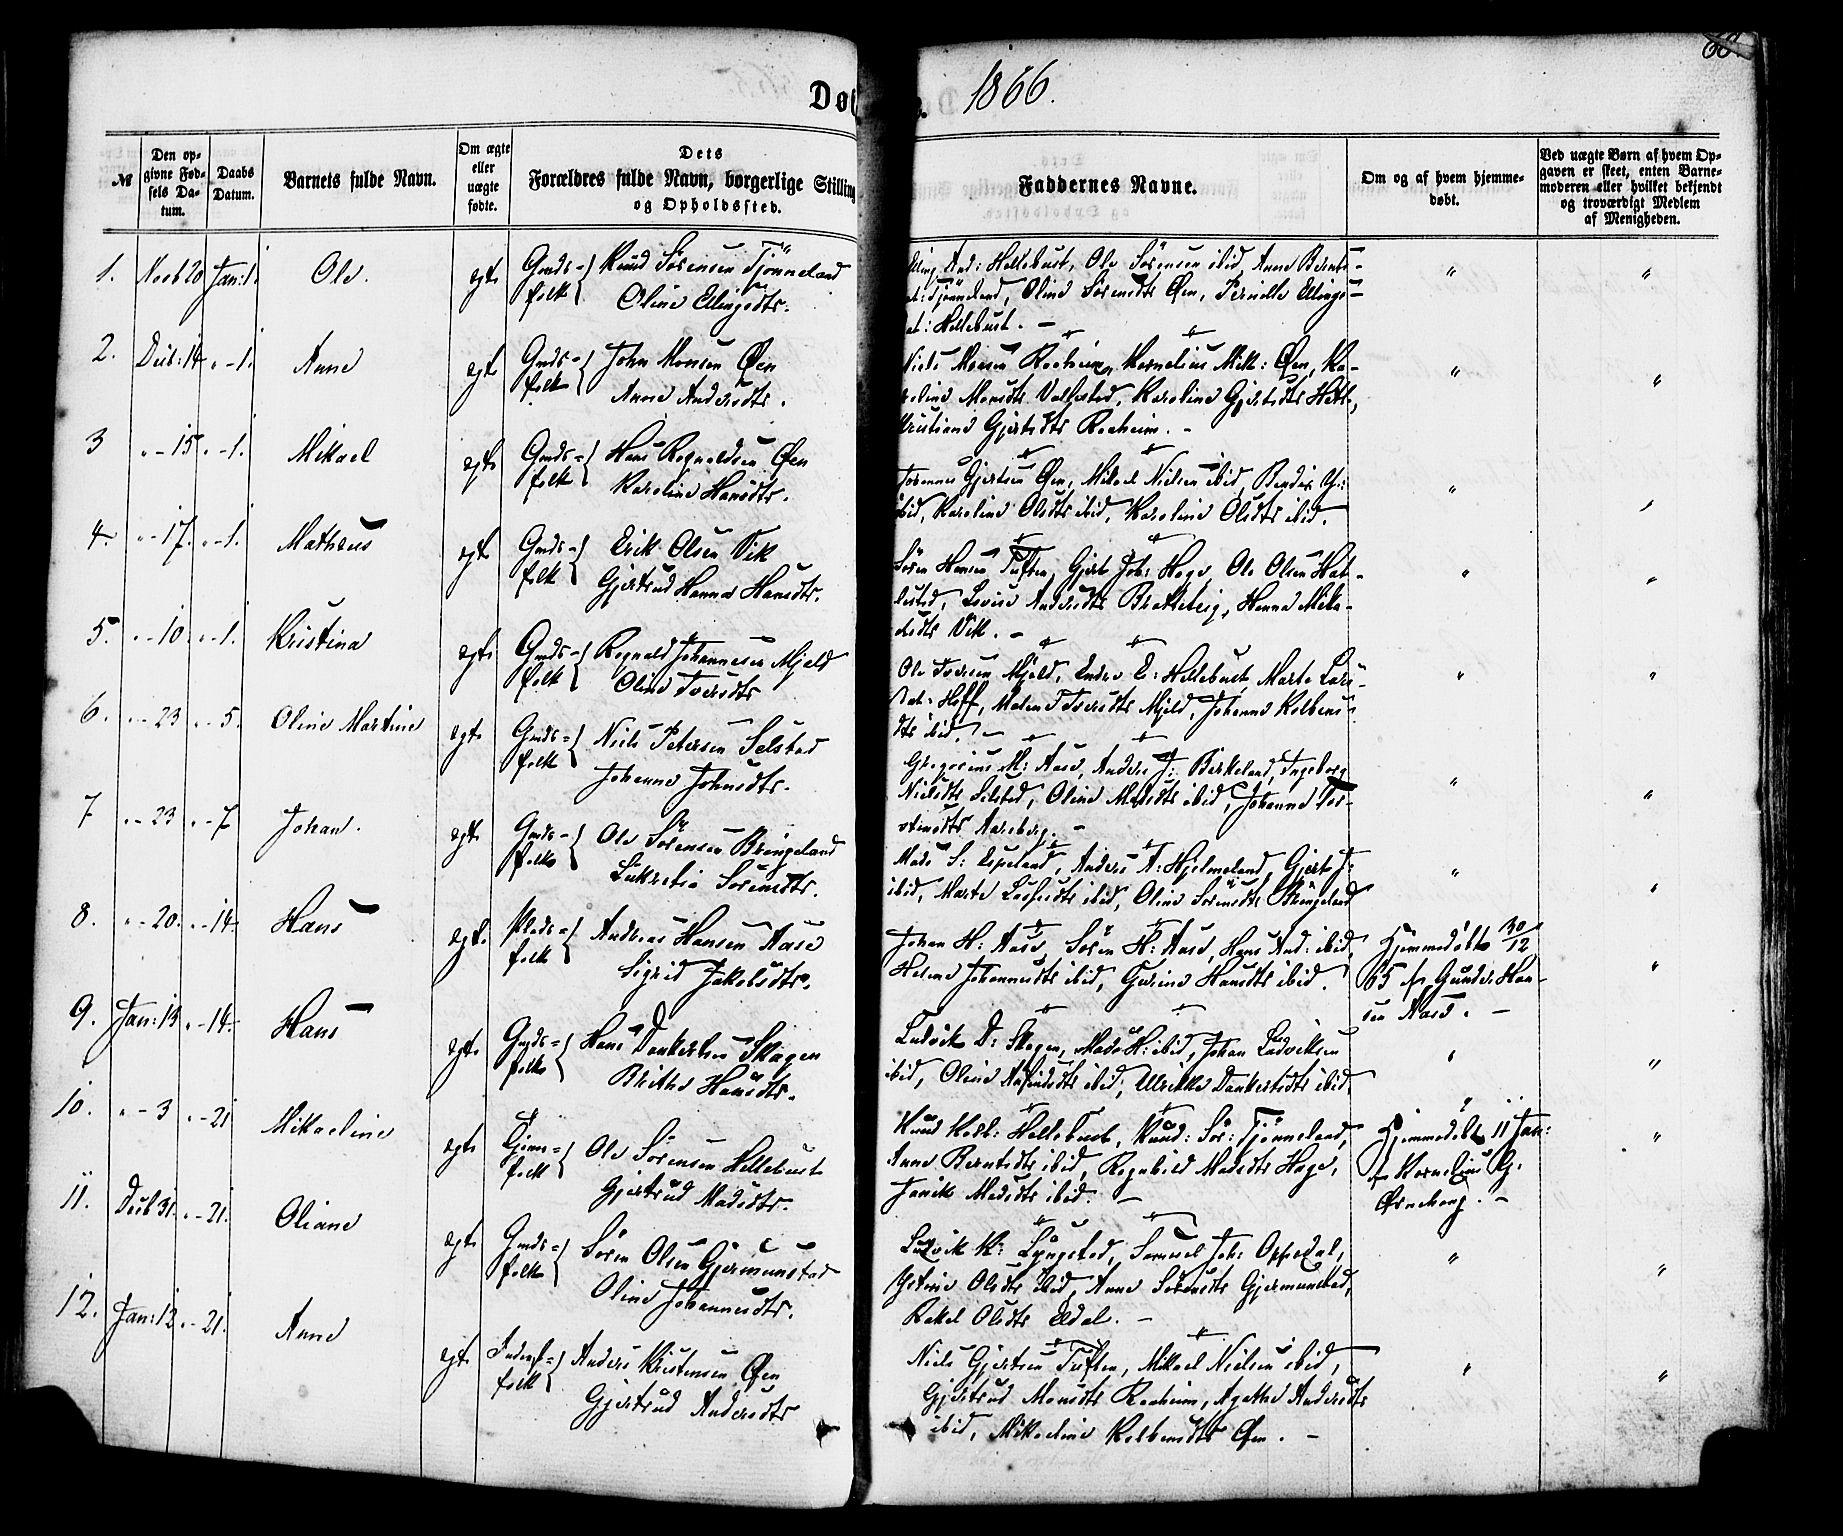 Dø
1866.
№
Den op-
givne Fød-
sels Da-
tum.
Daabs
Datum.
Barnets fulde Navn.
Om ægte
eller
uægte
fødte.
Dets
Forældres fulde Navn, borgerlige Stilling
og Opholdssted.
Faddernes Navne.
Om og af hvem hjemme-
døbt.
Ved uægte Børn af hvem Op-
gaven er skeet, enten Barne-
moderen eller hvilket bekjendt
og troværdigt Medlem
af Menigheden.
1. Novb 20 Jan: 1. Ole. egt. Gmds= folk { Knud Sörensen Tjönneland
Oline Ellingsdtr.
And: Hellebust, Ole Sörensen ibid, Anne Bernts-
dat: Tjönneland, Oline Sörensdtr Øen, Pernille Ellings-
dat: Hellebust. -
2. Decb: 14 " - 1. Anne egt Gmds= folk { John Monsen Øen
Anne Andersdtr.
Niels Monsen Roeheim, Kornelius Mik: Øen, Ka-
roline Monsdtr, Karoline Gjertsdtr
Kristiane Gjertsdtr Roeheim. -
3 " - 15 " - 1. Mikael egt. Gmds= folk { Hans Rognaldsen Øen
Karoline Hansdtr.
Johannes Gjertsen Øen, Mikael Nielsen ibid,
ibid, Karoline Olsdtr ibid, Karoline Olsdtr ibid.
4. " - 17. " - 1. Matheus egt Gmds= folk { Erik Olsen Vik
Gjertrud Hanna Hansdtr.
Sören Hansen Tuften, Gjert Joh: Hage, Ole Olsen Hat-
Lovise Andersdtr Bratteteig, Hanna Mika-
elsdtr Vik. -
5. " - 10 " - 1. Kristina egt. Gmds= folk { Rognald Johannesen Mjeld
Oline Iversdtr
Ole Iversen Mjeld, Endre E: Hellebust, Marte Lars-
dat: Hoff, Malene Iversdtr Mjeld, Johanne Kolbens-
dtr ibid. -
6. " - 23 " - 5. Oline Martine egt. Gmds= folk { Niels Petersen Selstad
Johanne Johnsdtr.
Gregorius M: Aase, Anders J: Birkeland, Ingeborg
Nielsdtr Selstad, Oline Madsdtr ibid, Johanne Tor-
Aareberg. -
7 " - 23 " - 7 Johan. egt. Gmds= folk { Ole Sörensen Bringeland
Lukretia Sörensdtr.
Mads S: Espeland, Anders A: Hjelmeland, Gjert J:
ibid, Marte Lassesdtr ibid, Oline Sörensdtr Bringeland
8. " - 20. " - 14. Hans egt. Plads= folk { Andreas Hansen Aase
Sigrid Jakobsdtr.
Johan H: Aase, Sören H: Aase, Hans And: ibid,
Helene Johannesdtr ibid, Gurine Hansdtr ibid.
Hjemmedöbt 30/12
65 af Gunder Han-
sen Aase. -
9. Jan: 13 " - 14. Hans egt. Gmds= folk { Hans Dankertsen Skagen
Brithe Hansdtr.
Ludvik D: Skagen, Mads H: ibid, Johan Ludviksen
ibid, Oline ibid, Ulrikke Dankertsdtr ibid.
10. " - 3 " - 21 Mikaeline egt. folk { Ole Sörensen Hellebust
Gjertrud Madsdtr.
Knud Kolb: Hellebust, Knud: Sör: Tjönneland,
Anne Berntsdtr ibid, Ragnhild Madsdtr Hage,
Madsdtr ibid. -
Hjemmedöbt 11 Jan:
af Kornelius G.
11. Decb 31. " - 21. Oliane egt. Gmds= folk { Sören Olsen Gjermunstad
Oline Johannesdtr.
Ludvik K: Lyngstad, Samuel Joh: Oppedal,
Olsdtr ibid, Anne Sörensdtr Gjermunstad,
Rakel Olsdtr Eldal. -
12. Jan: 12 " - 21. Anne egt. Inderst= folk { Anders Kristensen Øen
Gjertrud Andersdtr
Niels Gjertsen Tuften, Mikael Nielsen ibid,
Gjertrud Monsdtr Roeheim, Agathe Andersdtr
ibid, Mikaeline Kolbensdtr Øen. -